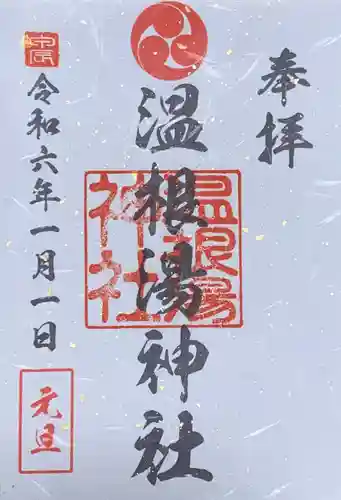 奉拝
温根湯神社
温根湯神社
令和六年一月一日
元旦